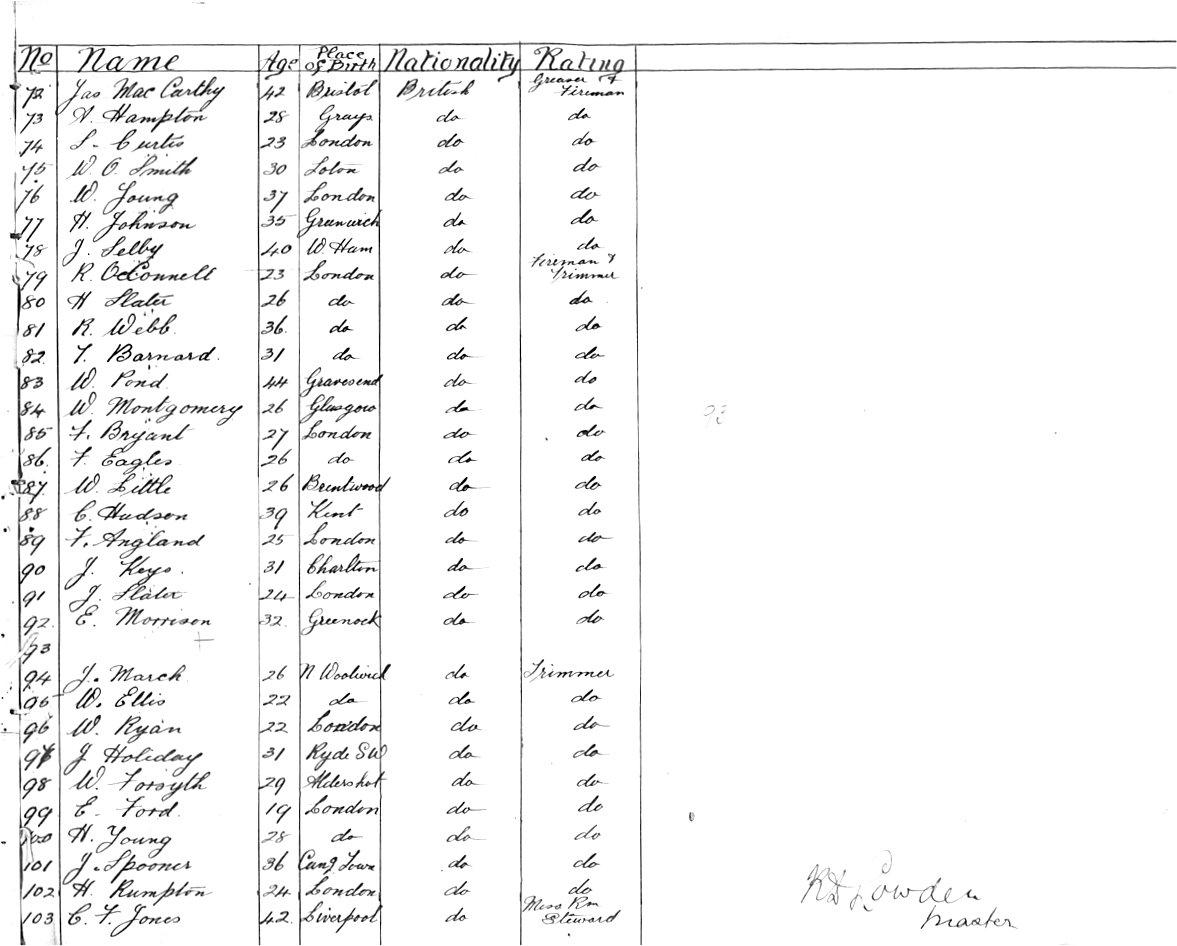 No Name Age Place of Birth Nationality Rating
72 Jas Mac Carthy 42 Bristol British Greaser & Fireman
73 Hampton 28 Grays do do
74 S. Curtis 23 London do do
75 W. O. Smith 30 Loton do do
76 W. Young 37 London do do
77 H. Johnson 35 Greenwich do do
78 J. Selby 40 W Ham do do
79 R. O'Connell 23 London do Fireman & Trimmer
80 H Slater 26 do do do
81 R. Webb. 36. do do do
82. T. Barnard. 31 do do do
83 W. Pond. 44 Gravesend do do
84 W. Montgomery 26 Glasgow do do
85 F. Bryant 27 London do do
86. F. Eagles. 26 do do do
87. W. Little 26 Brentwood do do
88 C. Hudson 39 Kent do do
89 F. Angland 25 London do do
90 J. Keys. 31 Charlton do do
91 J. Slater 24 London do do
92. E. Morrison 32. Greenock do do
93
94 J. March 26 N Woolwich do Trimmer
95 W. Ellis 22 do do do
96 W. Ryan 22 London do do
97 J Holiday 31 Ryde do do
98 W. Forsyth 29 Aldershot do do
99 E. Ford. 19 London do do
100 H. Young 28 do do do
101 J. Spooner 36 Cang Town do do
102 H. Rumpton 24 London do do
103 C. F. Jones 42. Liverpool do Mess Rm Steward
93
Master